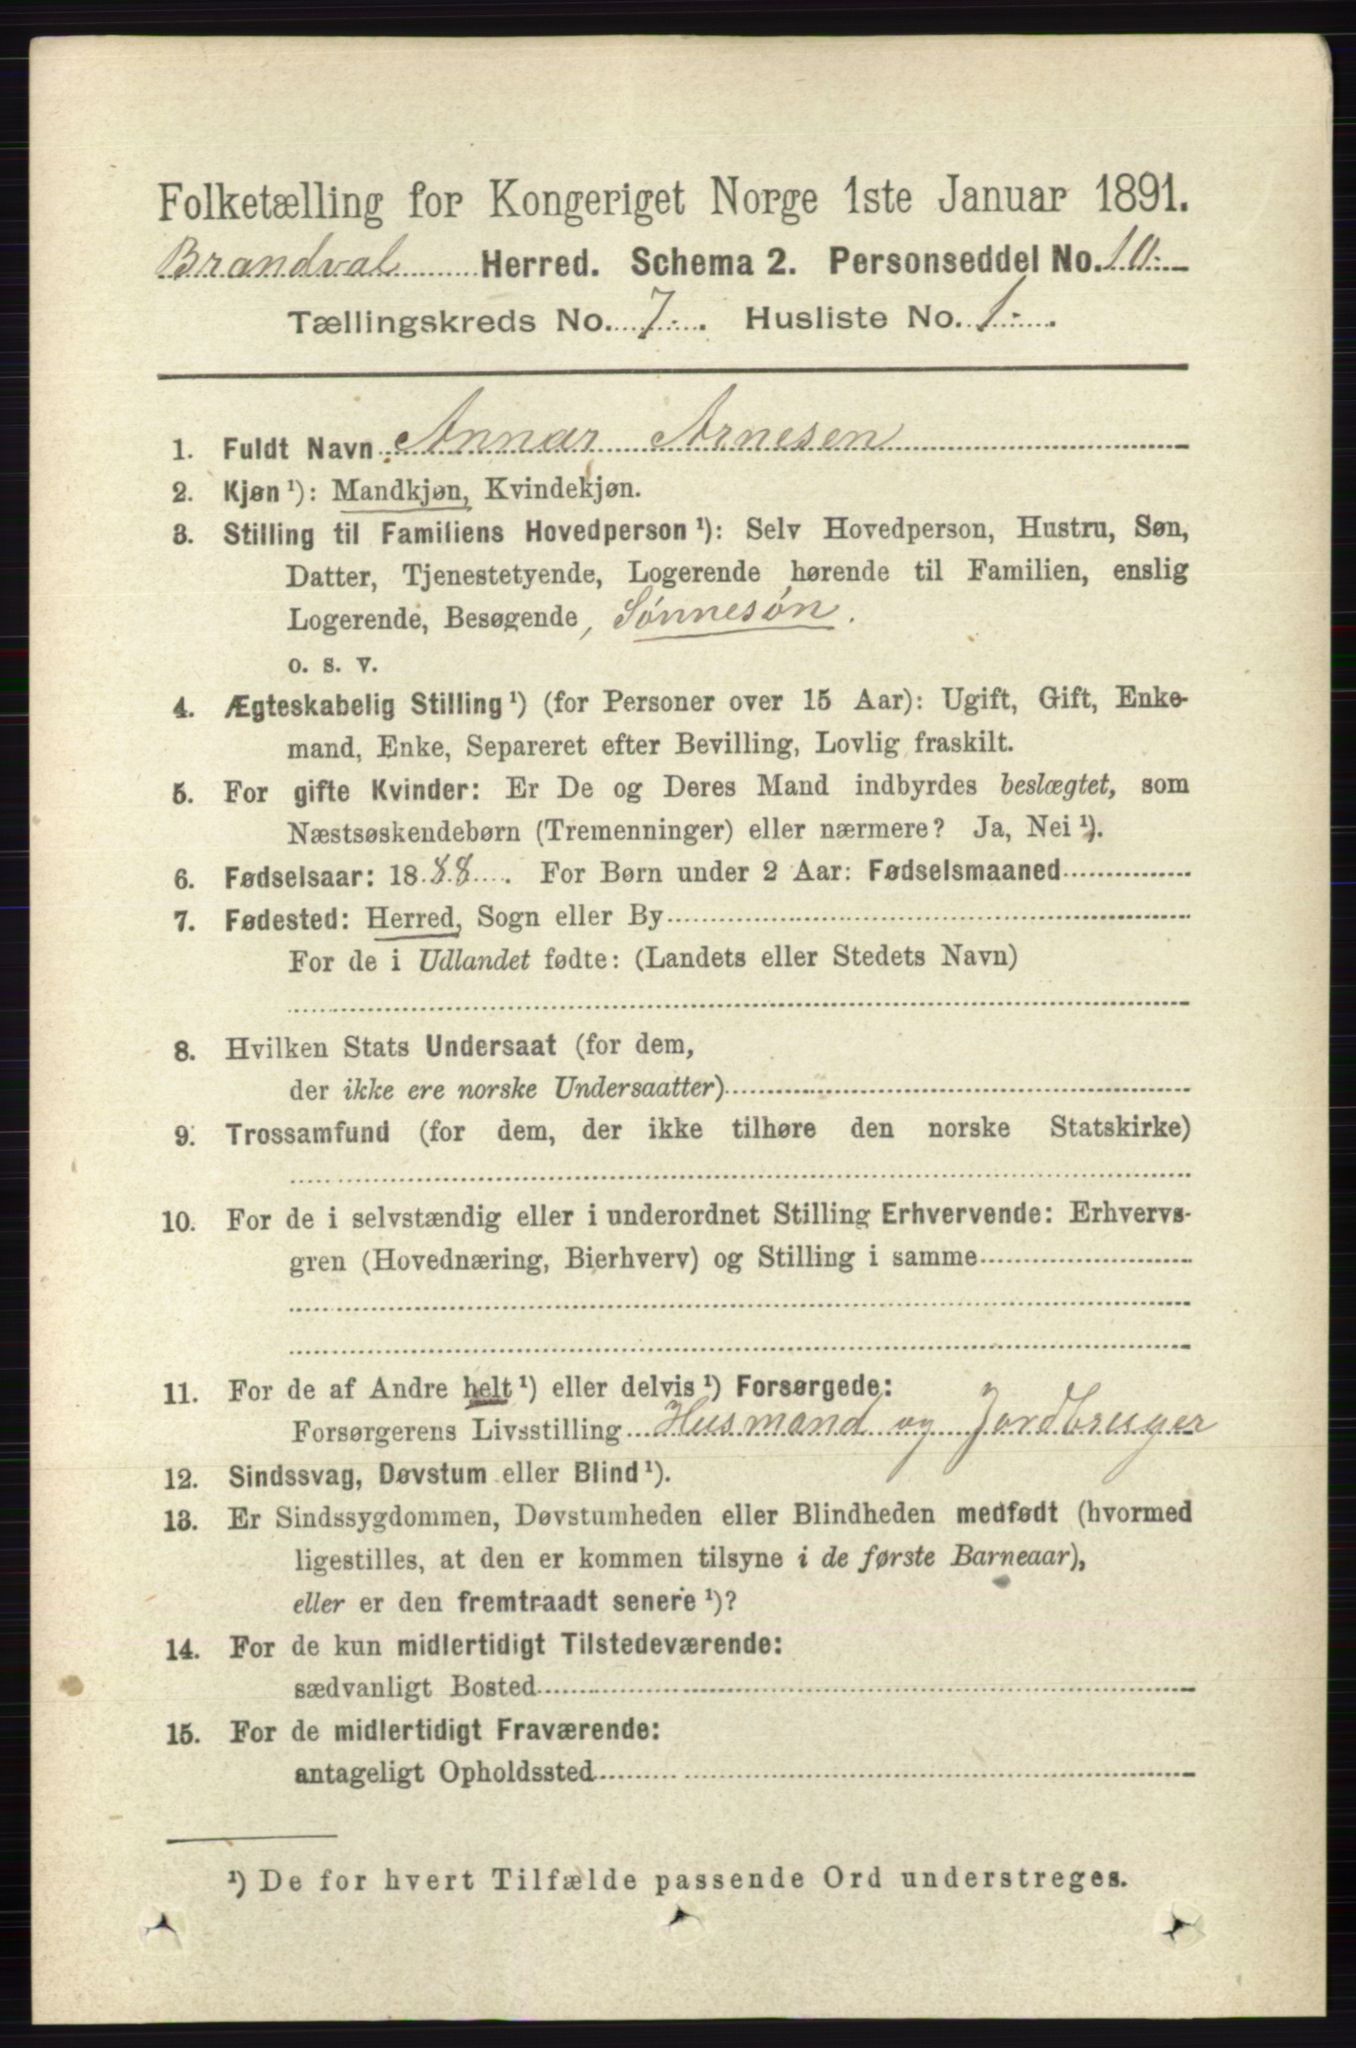 Folketælling for Kongeriget Norge 1ste Januar 1891.
Brandval Herred. Schema 2. Personseddel No. 10.
Tællingskreds No. 7. Husliste No. 1.
1. Fuldt Navn Annar Arnesen
2. Kjøn ¹): Mandkjøn, Kvindekjøn.
3. Stilling til Familiens Hovedperson ¹): Selv Hovedperson, Hustru, Søn,
Datter, Tjenestetyende, Logerende hørende til Familien, enslig
Logerende, Besøgende, Sønnesøn.
o. s. v.
4. Ægteskabelig Stilling ¹) (for Personer over 15 Aar): Ugift, Gift, Enke-
mand, Enke, Separeret efter Bevilling, Lovlig fraskilt.
5. For gifte Kvinder: Er De og Deres Mand indbyrdes beslægtet, som
Næstsøskendebørn (Tremenninger) eller nærmere? Ja, Nei ¹).
6. Fødselsaar: 1888. For Børn under 2 Aar: Fødselsmaaned
7. Fødested: Herred, Sogn eller By
For de i Udlandet fødte: (Landets eller Stedets Navn)
8. Hvilken Stats Undersaat (for dem,
der ikke ere norske Undersaatter)
9. Trossamfund (for dem, der ikke tilhøre den norske Statskirke)
10. For de i selvstændig eller i underordnet Stilling Erhvervende: Erhvervs-
gren (Hovednæring, Bierhverv) og Stilling i samme
11. For de af Andre helt ¹) eller delvis ¹) Forsørgede:
Forsørgerens Livsstilling Husmand og Jordbruger
12. Sindssvag, Døvstum eller Blind ¹).
13. Er Sindssygdommen, Døvstumheden eller Blindheden medfødt (hvormed
ligestilles, at den er kommen tilsyne i de første Barneaar),
eller er den fremtraadt senere ¹)?
14. For de kun midlertidigt Tilstedeværende:
sædvanligt Bosted
15. For de midlertidigt Fraværende:
antageligt Opholdssted
¹) De for hvert Tilfælde passende Ord understreges.